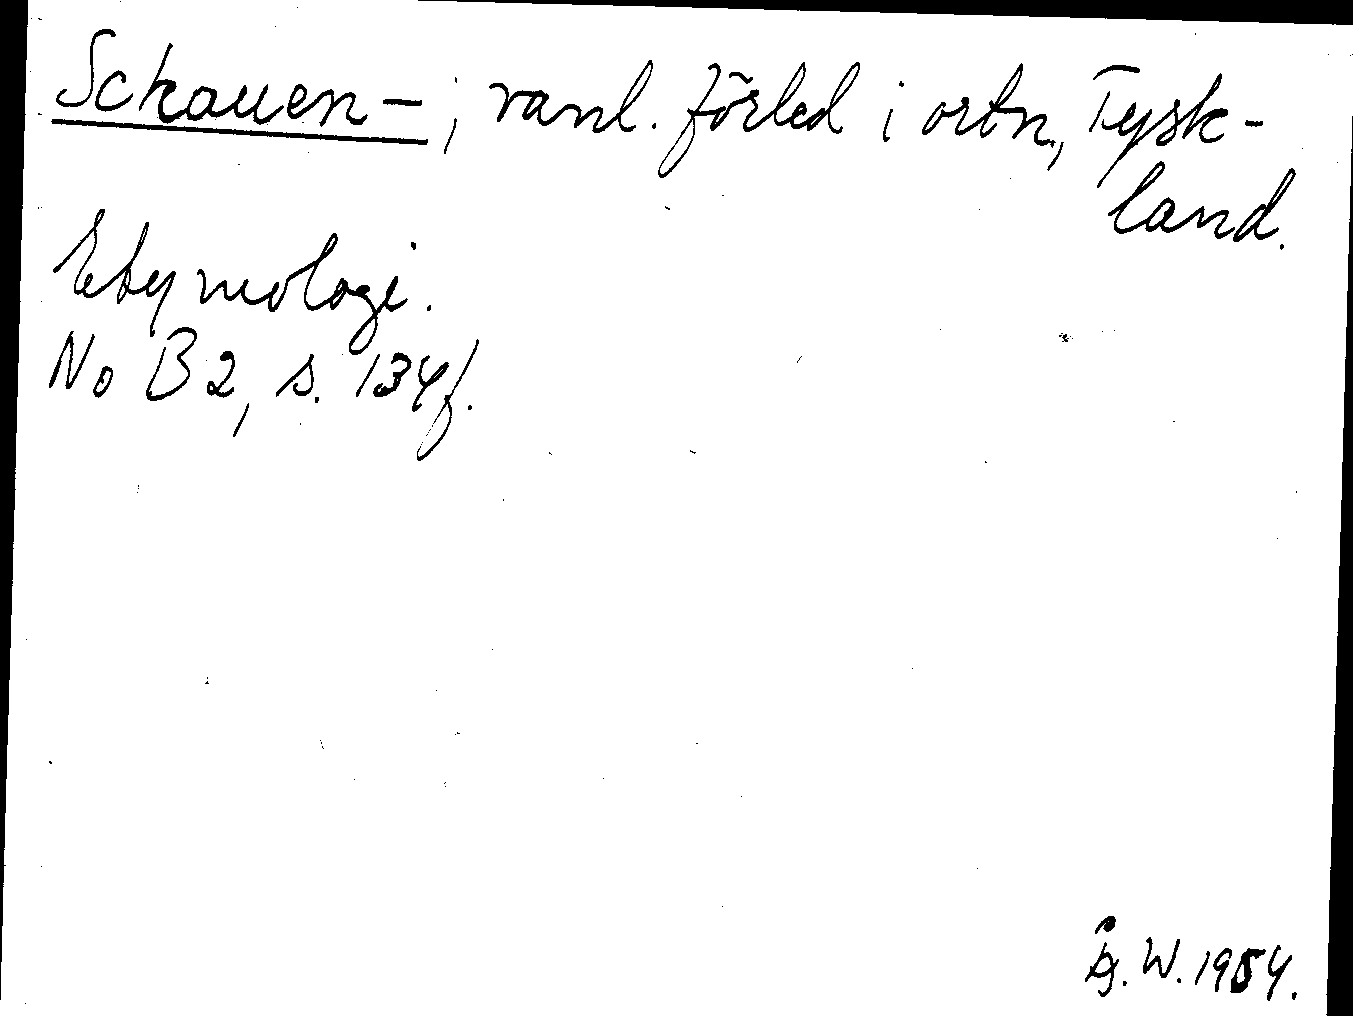 Schauen-; vanl. förled i ortn., Tysk-
land.
Etymologi.
No B 2, s. 134 f.
Å. W. 1954.